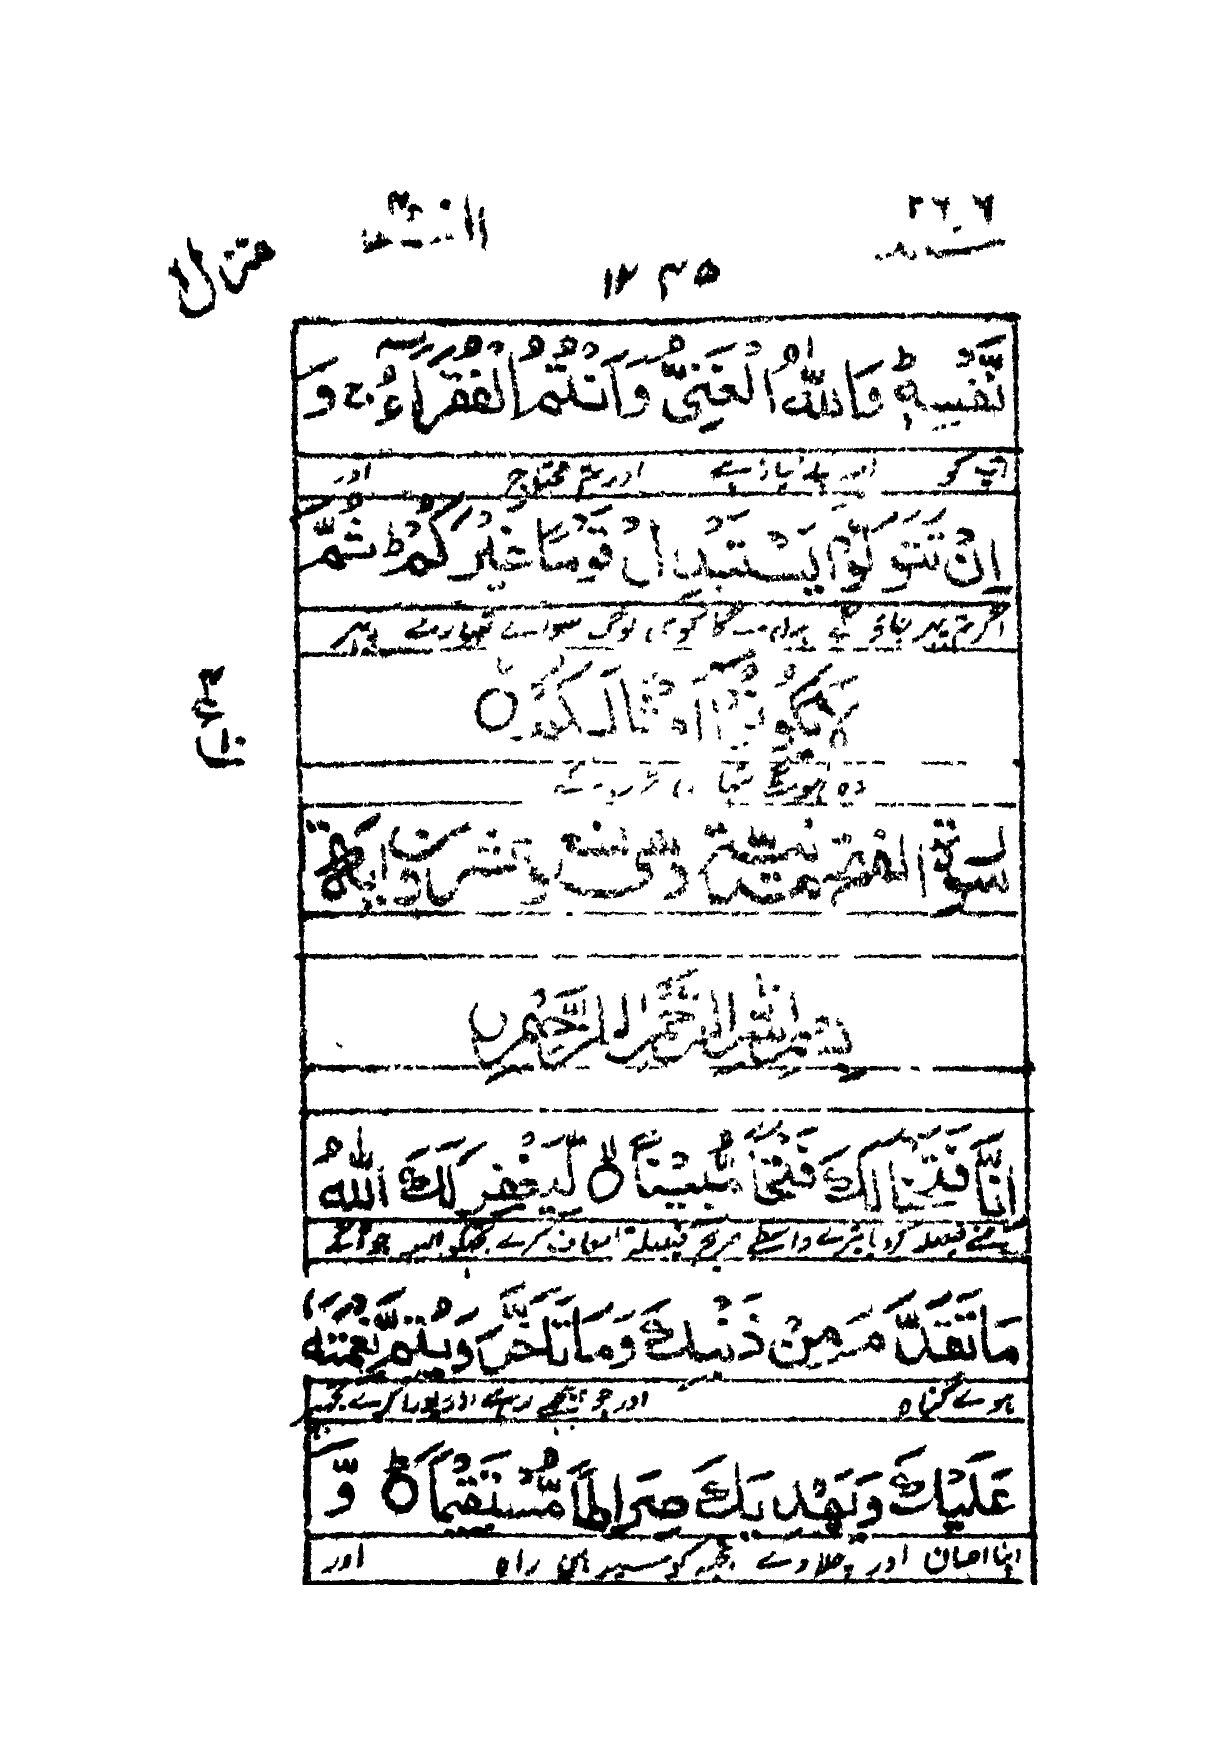 الفتح
١٢٣٥
منزل ٦
نَّفْسِهٖ ؕ وَاللّٰهُ الْغَنِیُّ وَاَنْتُمُ الْفُقَرَآءُ ۚ وَ
آپ کو اور بے نیاز ہے اور تم محتاج اور
اِنْ تَتَوَلَّوْا یَسْتَبْدِلْ قَوْمًا غَیْرَكُمْ ؕ ثُمَّ
اگر تم پھر جاؤ گے سوائے تمہارے پھر
لَا یَكُوْنُوْۤا اَمْثَالَكُمْ ۝
وہ ہونگے
سورة الفتح مدنیة وھی تسع وعشرون اٰیة
بِسْمِ اللّٰهِ الرَّحْمٰنِ الرَّحِیْمِ
اِنَّا فَتَحْنَا لَكَ فَتْحًا مُّبِیْنًا ۝ لِّیَغْفِرَ لَكَ اللّٰهُ
ہمنے فیصلہ کر دیا تیرے واسطے صریح فیصلہ معاف کرے تجھکو اللہ جو آگے
مَا تَقَدَّمَ مِنْ ذَنْۢبِكَ وَمَا تَاَخَّرَ وَیُتِمَّ نِعْمَتَهٗ
ہوے گناہ اور جو پیچھے رہے اور پورا کرے تجھپر
عَلَیْكَ وَیَهْدِیَكَ صِرَاطًا مُّسْتَقِیْمًا ۝ وَّ
اپنا احسان اور چلاوے تجھ کو سیدھی راہ اور